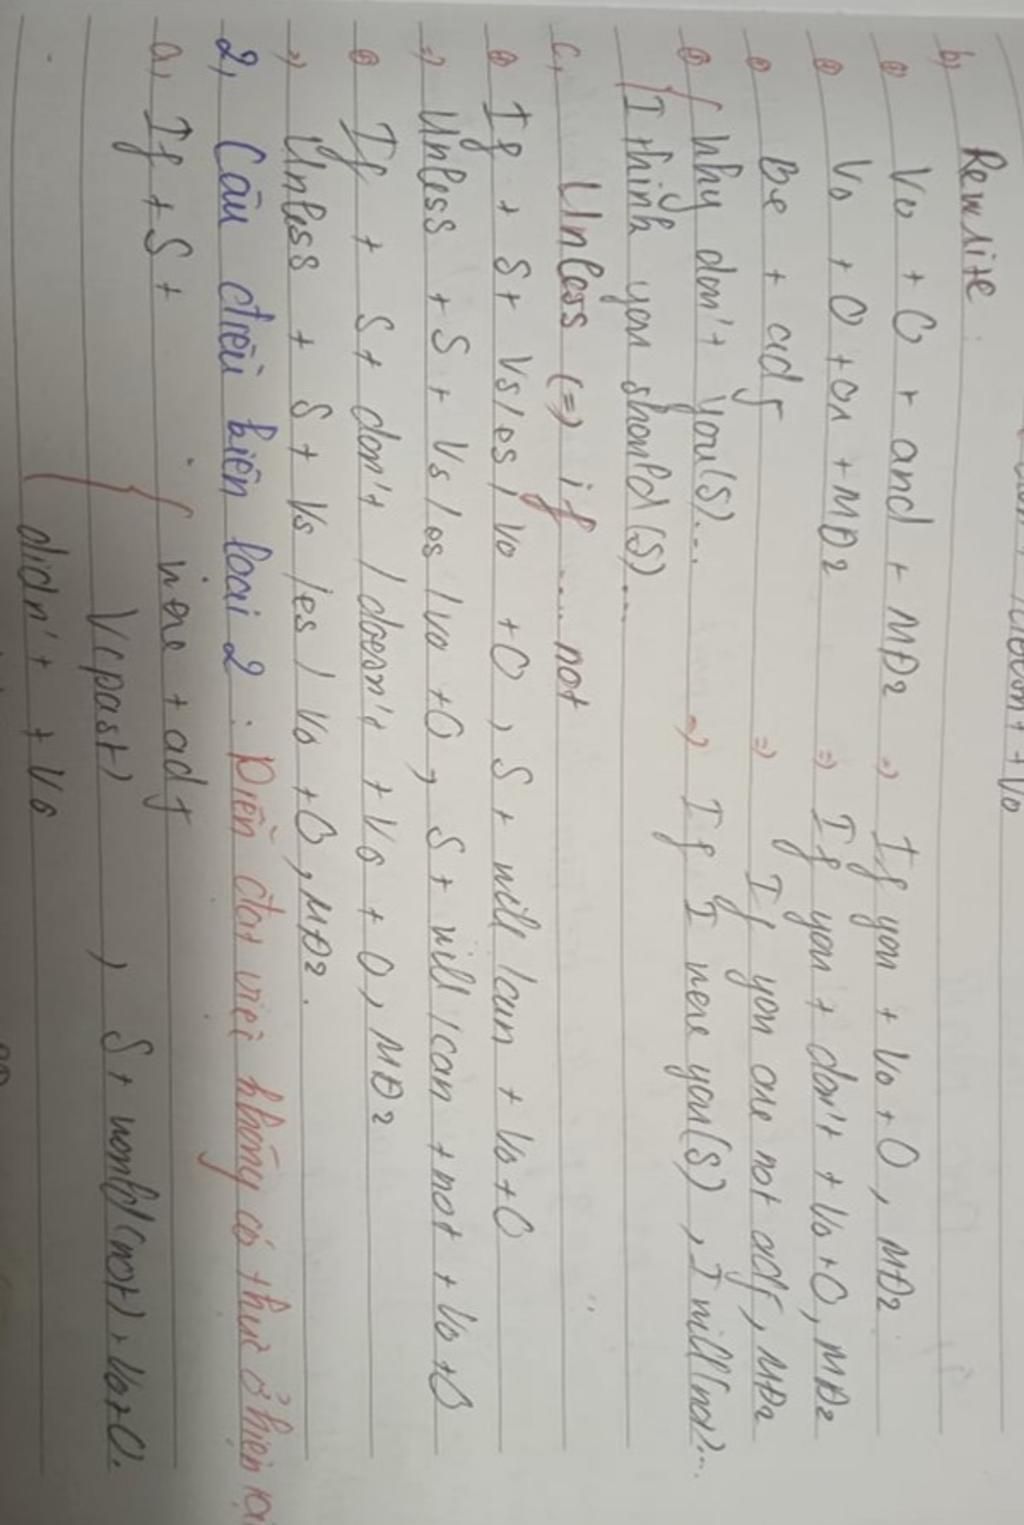 b, Rewrite:
Vo + O + and + MĐ2 => If you + Vo + O, MĐ2
Vo + O + or + MĐ2 => If you + don't + Vo + O, MĐ2
Be + adj => If you are not adj, MĐ2
Why don't you(S)... => If I were you(S), I will(not)...
I think you should(S)...
c, Unless (=) if .... not
If + S + Vs/es/Vo + O, S + will/can + Vo + O
=) Unless + S + Vs/es/Vo + O, S + will/can + not + Vo + O
If + S + don't / doesn't + Vo + O, MĐ2
=) Unless + S + Vs/es/Vo + O, MĐ2.
2, Câu điều kiện loại 2: Diễn đạt việc không có thực ở hiện tại
a, If + S + were + adj
V(past) , S + would(not) + Vo + O.
didn't + Vo